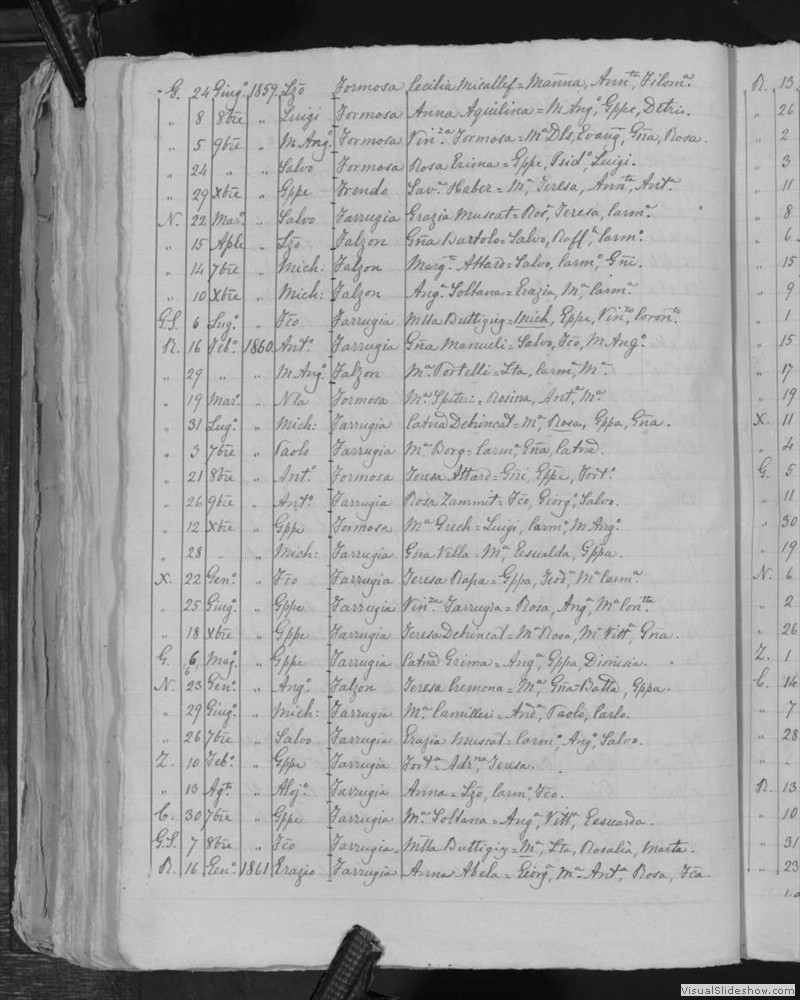 G. 24 Giug.o 1859. Lz̄o Formosa Cecilia Micallef = Mañna, Ann.ta, Filom.a
" 8 8bre " Luigi Formosa Anna Aquilina = M Ang.a, Gppe, Detris.
" 5 9bre " M Ang.o Formosa Vin.za Formosa = M.a Dls, Evang., Gña, Rosa.
" 24 " " Salvo Formosa Rosa Grima = Gppe, Isid.o, Luigi.
" 29 Xbre " Gppe Frendo Sav.a Haber = M.a, Teresa, Ann.ta, Ant.a
N. 22 Mar.o " Salvo Farrugia Grazia Muscat = Ros.a, Teresa, Carm.a
" 15 Aple " Lz̄o Falzon Gña Bartolo = Salvo, Raff.e, Carm.o
" 14 7bre " Mich: Falzon Marg.ta Attard = Salvo, Carm.o, Gñi.
" 10 Xbre " Mich: Falzon Ang.a Soltana = Grazia, M.a, Carm.a
G.S. 6 Lug.o " Fc̄o Farrugia Mlla Buttigieg = Mich, Gppe, Vin.zo, Coron.ta
R. 16 Feb.o 1860. Ant.o Farrugia Gña Manueli = Salvo, Fc̄o, M Ang.o
" 29 " " M Ang.o Falzon M.a Portelli = Lta, Carm.a, M.a
" 19 Mar.o " Nla Formosa M.a Spiteri = Rosina, Ant.a, M.a
" 31 Lug.o " Mich: Farrugia Catna Debrincat = M.a, Rosa, Gppa, Gña.
" 3 7bre " Paolo Farrugia M.a Borg = Carm.a, Gña, Catna.
" 21 8bre " Ant.o Formosa Teresa Attard = Gñi, Gppe, Fort.o
" 26 9bre " Ant.o Farrugia Rosa Zammit = Fc̄o, Giorg.o, Salvo.
" 12 Xbre " Gppe Formosa M.a Grech = Luigi, Carm.o, M Ang.o
" 28 " " Mich: Farrugia Gña Vella = M.a, Gesualda, Gppa.
X. 22 Gen.o " Fc̄o Farrugia Teresa Rapa = Gppa, Teod.a, M.a Carm.a
" 25 Giug.o " Gppe Farrugia Vin.za Farrugia = Rosa, Ang.a, M.a Con.tta
" 18 Xbre " Gppe Farrugia Teresa Debrincat = M.a Rosa, M.a Vitt.a, Gña.
G. 6 Mag.o " Gppe Farrugia Catna Grima = Ang.a, Gppa, Dionisia.
N. 23 Gen.o " Ang.o Falzon Teresa Cremona = M.a, Gña-Batta, Gppa.
" 29 Giug.o " Mich: Farrugia M.a Camilleri = And.a, Paolo, Carlo.
" 26 7bre " Salvo Farrugia Grazia Muscat = Carm.o, Ang.o, Salvo.
Z. 10 Feb.o " Gppe Farrugia Fort.a = Adr.na, Teresa.
" 13 Ag.to " Aloj.o Farrugia Anna = Lz̄o, Carm.o, Fc̄o.
C. 30 7bre " Gppe Farrugia M.a Soltana = Ang.a, Vitt.a, Gesuarda.
G.S. 7 8bre " Fc̄o Farrugia Mlla Buttigieg = M.a, Lta, Rosalia, Marta.
R. 16 Gen.o 1861 Grazio Farrugia Anna Abela = Giorg.a, M.a-Ant.a, Rosa, Fc̄a.
R. 13
" 26
" 2
" 3
" 11
" 8
" 6
" 15
" 9
" 1
" 15
" 17
" 19
X. 11
" 4
G. 5
" 11
" 30
" 19
N. 6
" 2
" 26
Z. 1
C. 14
" 7
" 28
" "
R. 13
" 10
" 31
" 23
VisualSlideshow.com